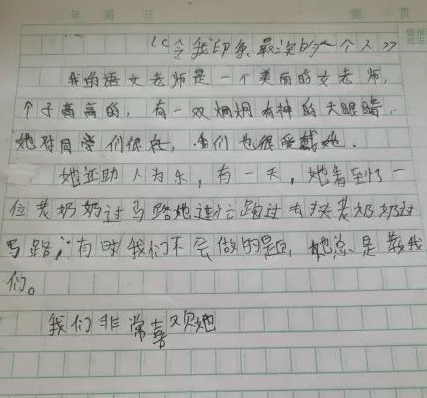 《令我印象最深的一个人》
我的语文老师是一个美丽的女老师,
个子高高的,有一双炯炯有神的大眼睛.
她对同学们很好,我们也很爱戴她.
她还助人为乐,有一天,她看到了一
位老奶奶过马路她连忙跑过去扶老奶奶过
马路;有时我们不会做的题,她总是教我
们。
我们非常喜欢她